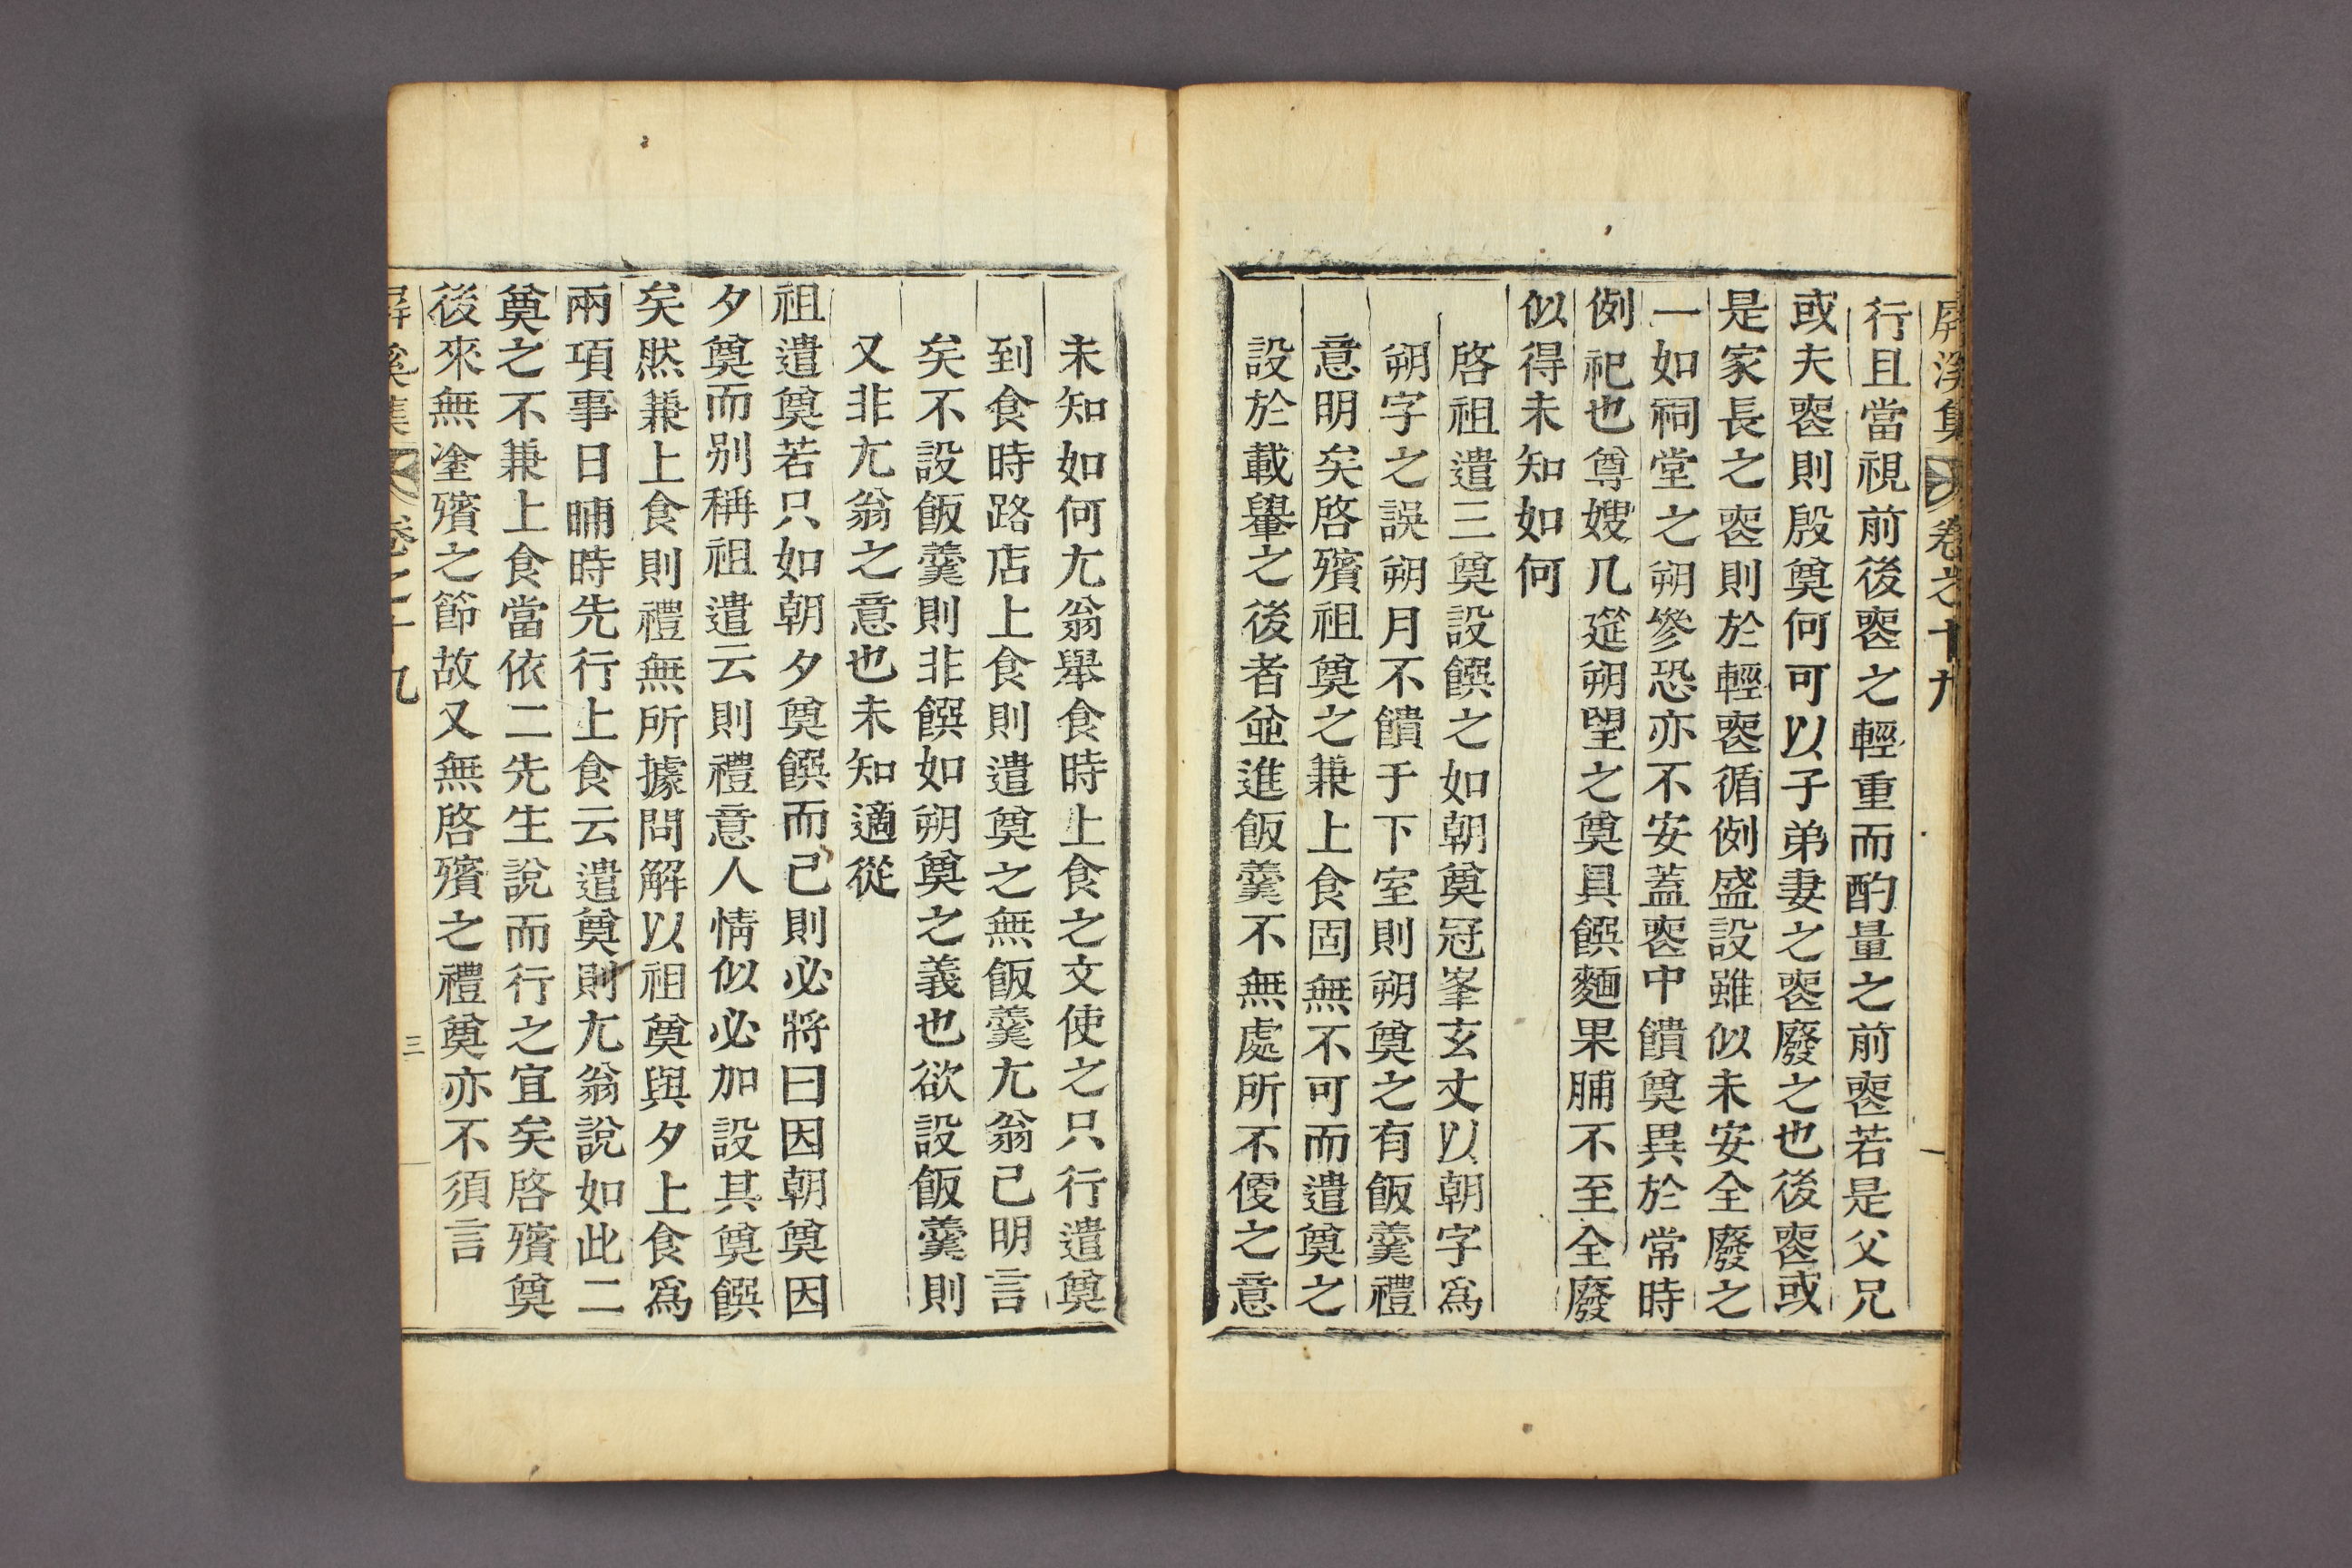 屛溪集 卷之十九
行且當視前後喪之輕重而酌量之前喪若是父兄
或夫喪則殷奠何可以子弟妻之喪廢之也後喪或
是家長之喪則於輕喪循例盛設雖似未安全廢之
一如祠堂之朔參恐亦不安蓋喪中饋奠異於常時
例祀也尊嫂几筵朔望之奠具饌麵果脯不至全廢
似得未知如何
啓祖遣三奠設饌之如朝奠冠峯玄丈以朝字爲
朔字之誤朔月不饋于下室則朔奠之有飯羹禮
意明矣啓殯祖奠之兼上食固無不可而遣奠之
設於載轝之後者並進飯羹不無處所不便之意
未知如何尤翁擧食時上食之文使之只行遣奠
到食時路店上食則遣奠之無飯羹尤翁已明言
矣不設飯羹則非饌如朔奠之義也欲設飯羹則
又非尤翁之意也未知適從
祖遣奠若只如朝夕奠饌而已則必將曰因朝奠因
夕奠而別稱祖遣云則禮意人情似必加設其奠饌
矣然兼上食則禮無所據問解以祖奠與夕上食爲
兩項事日晡時先行上食云遣奠則尤翁說如此二
奠之不兼上食當依二先生說而行之宜矣啓殯奠
後來無塗殯之節故又無啓殯之禮奠亦不須言
屛溪集 卷之十九 三